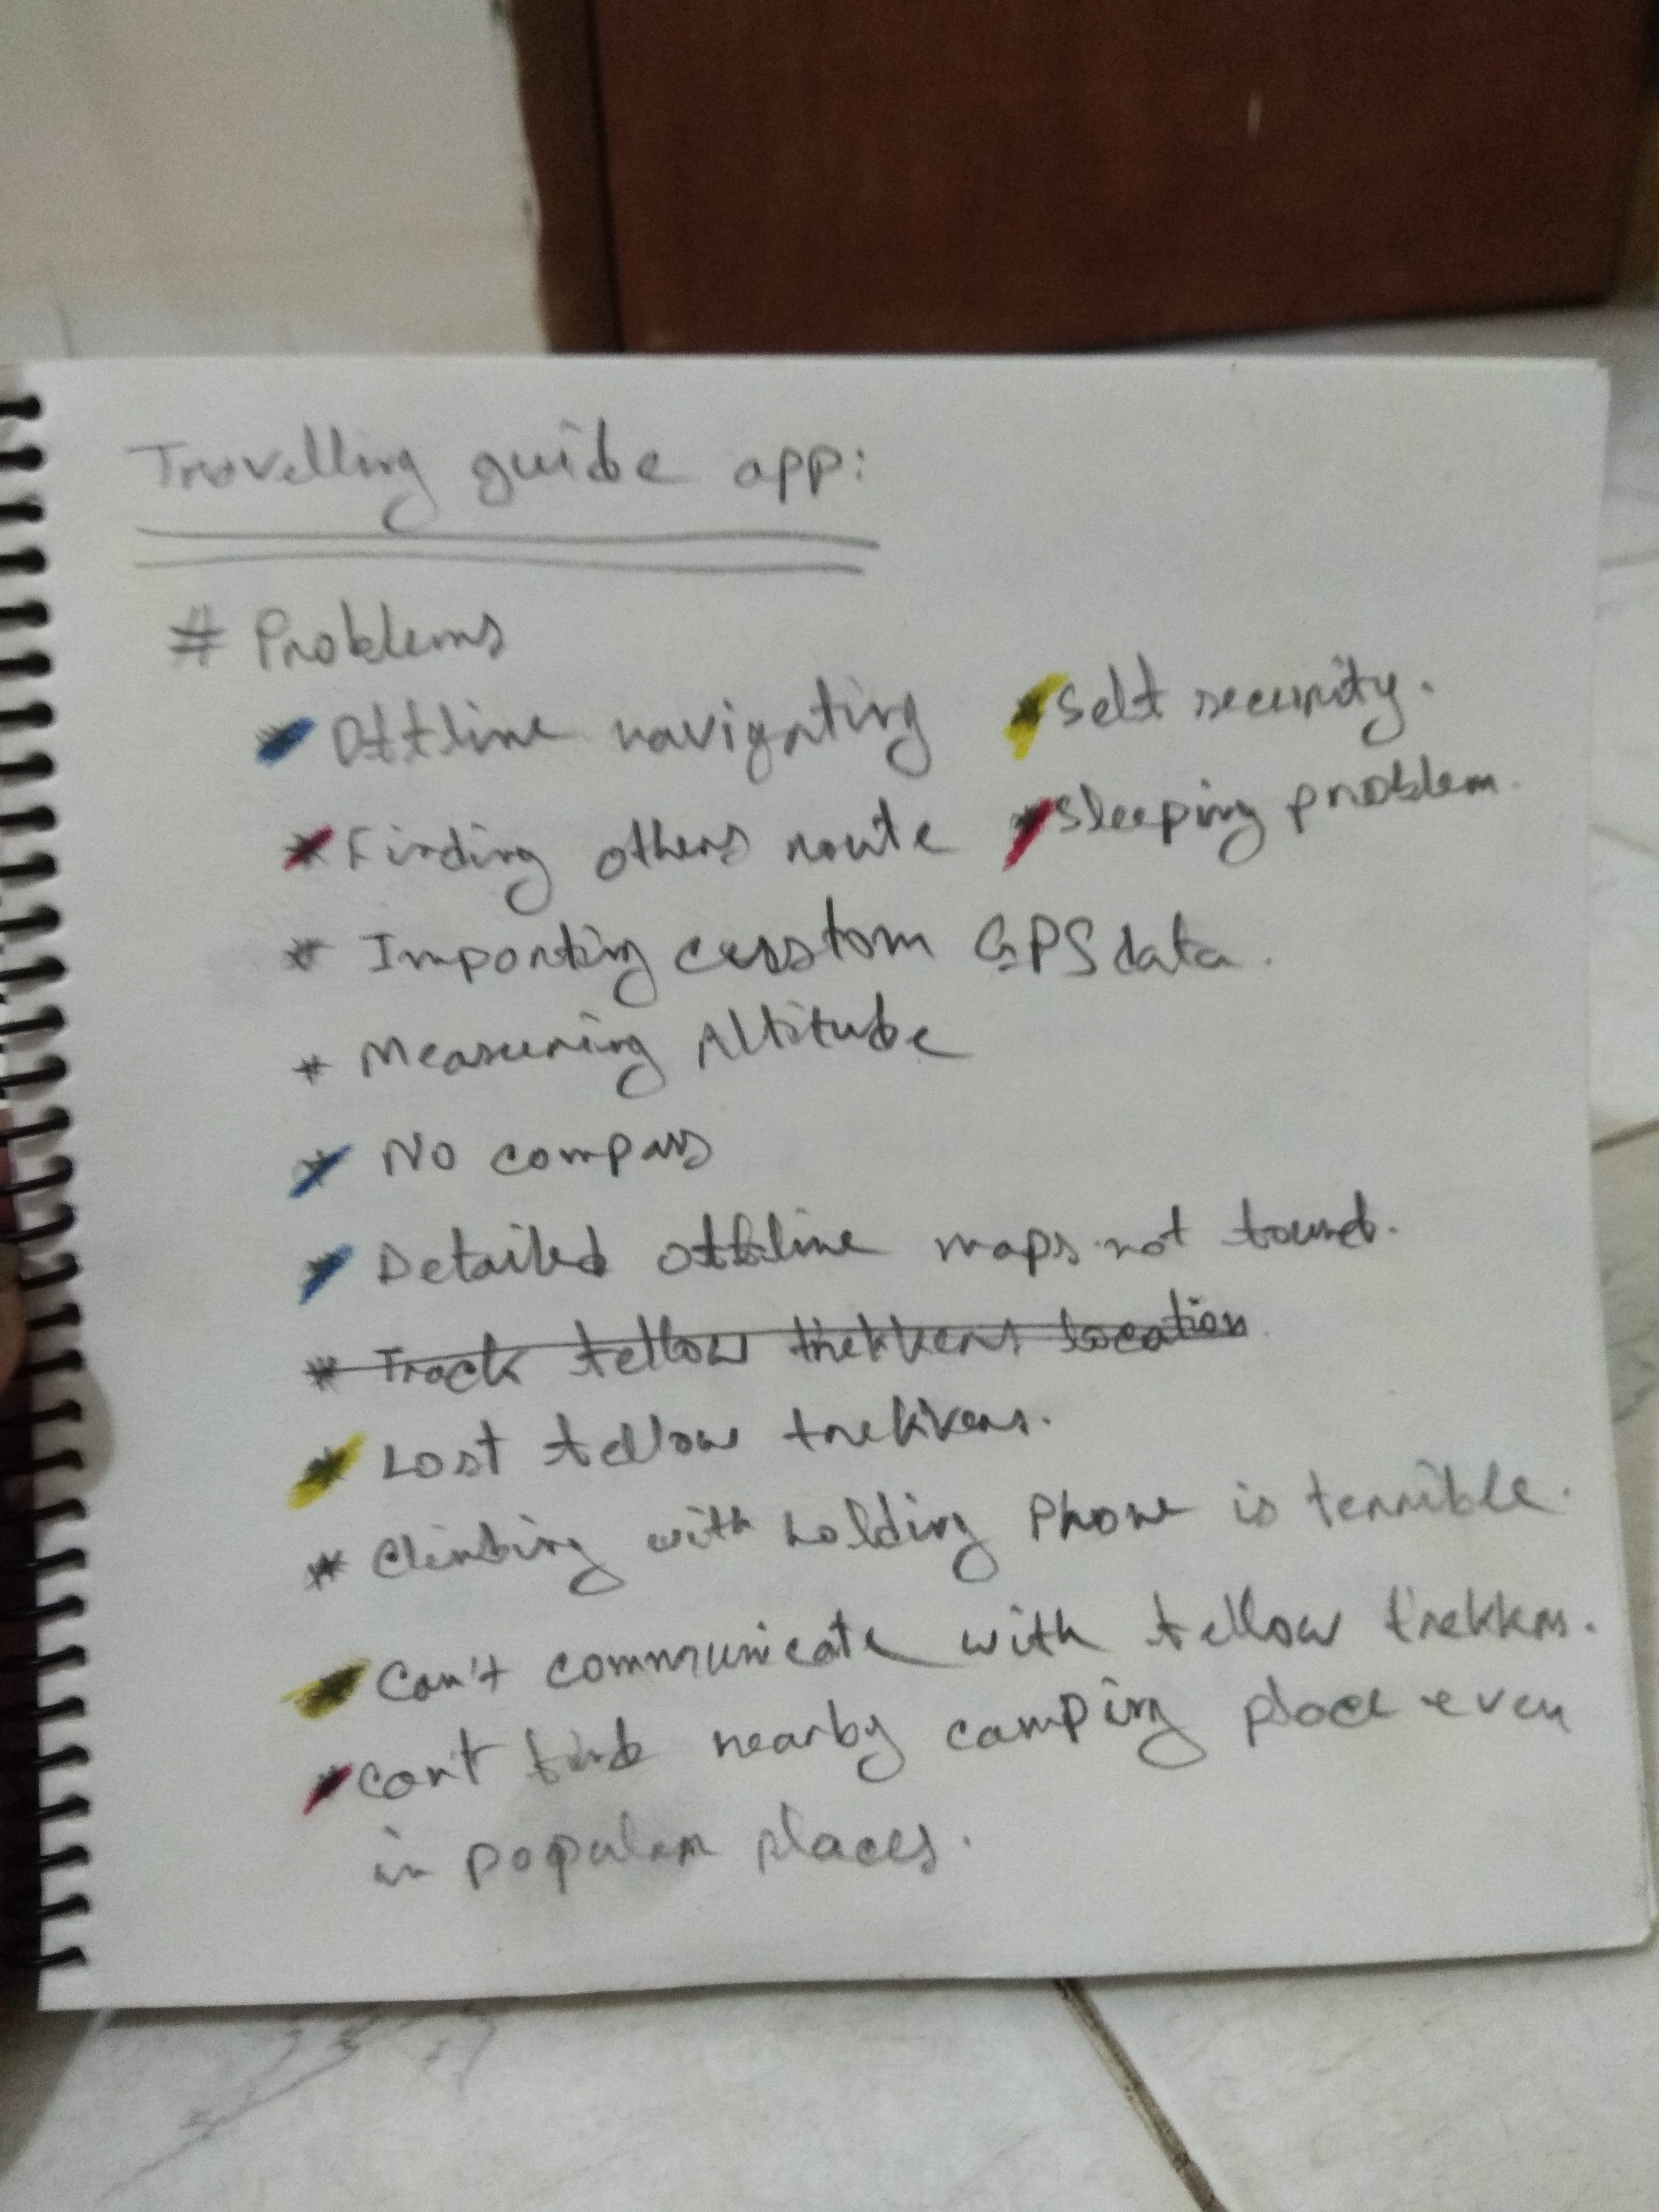 Travelling guide app:
# Problems
* Offline navigating
* Self security.
* Finding others route
* Sleeping problem.
* Importing cusstom GPS data.
* Measuring Altitude
* No compass
* Detailed offline maps not found.
* Track fellow trekkers location
* Lost fellow trekkers.
* Climbing with holding Phone is terrible.
* Can't communicate with fellow trekkers.
* Can't find nearby camping place even
in popular places.